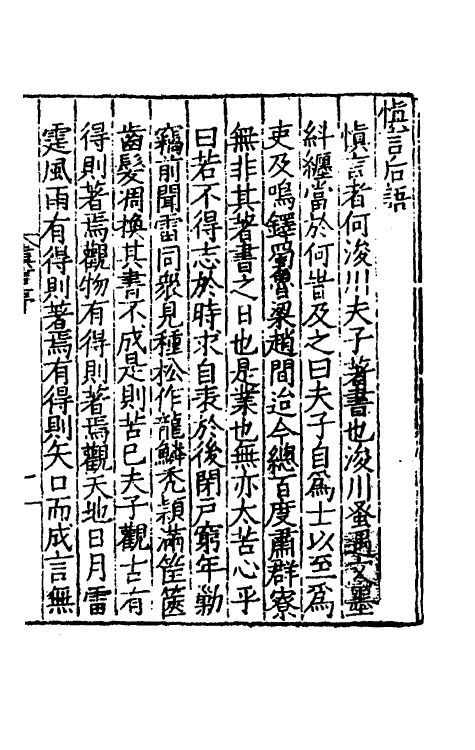 慎言后語
慎言者何浚川夫子著書也浚川蚤遇文墨
糾纏當於何昔及之曰夫子自爲士以至爲
吏及嗚鐸蜀曹梁趙間迨今總百度肅群寮
無非其著書之日也是業也無亦太苦心乎
曰若不得志於時求自表於後閉戸窮年勦
竊前聞雷同衆見種松作龍鱗禿穎滿筐篋
齒髮凋換其書不成是則苦已夫子觀古有
得則著焉觀物有得則著焉觀天地日月雷
霆風雨有得則著焉有得則矢口而成言無